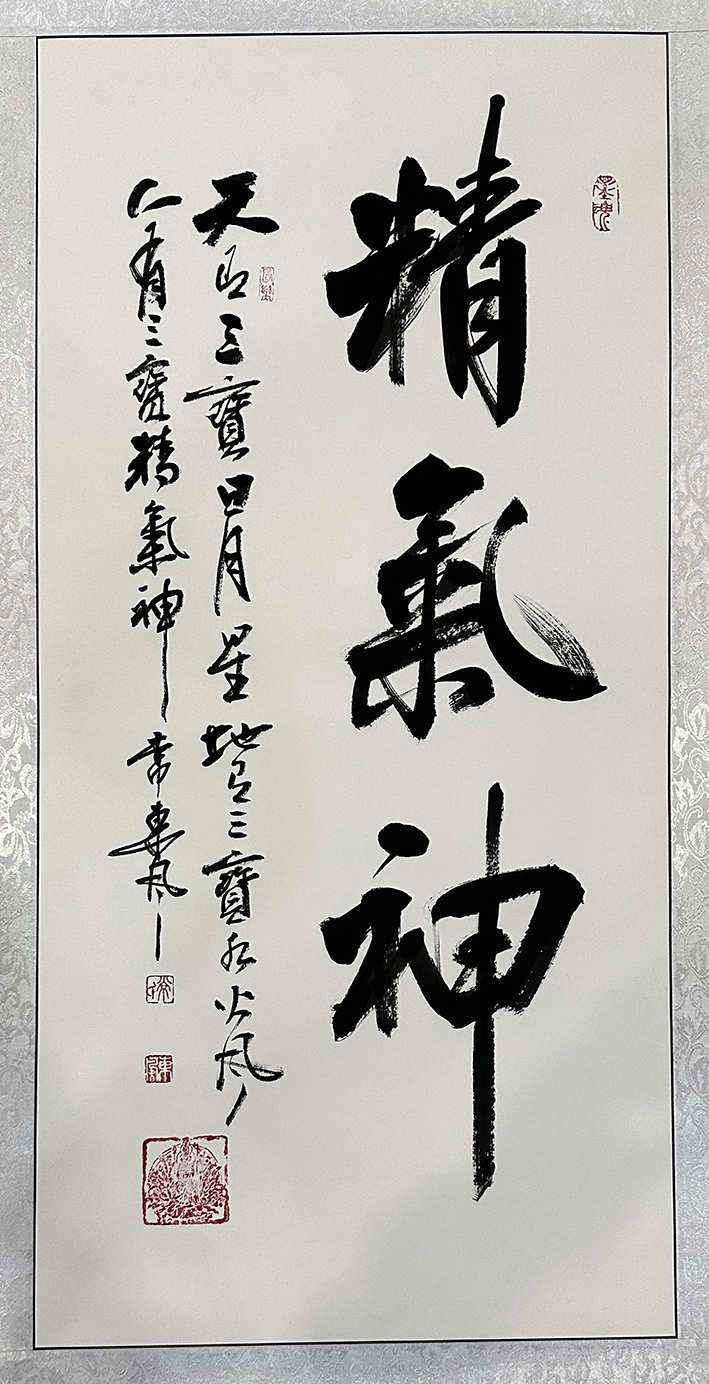 精氣神
天有三寶日月星地有三寶水火風
人有三寶精氣神 常東風